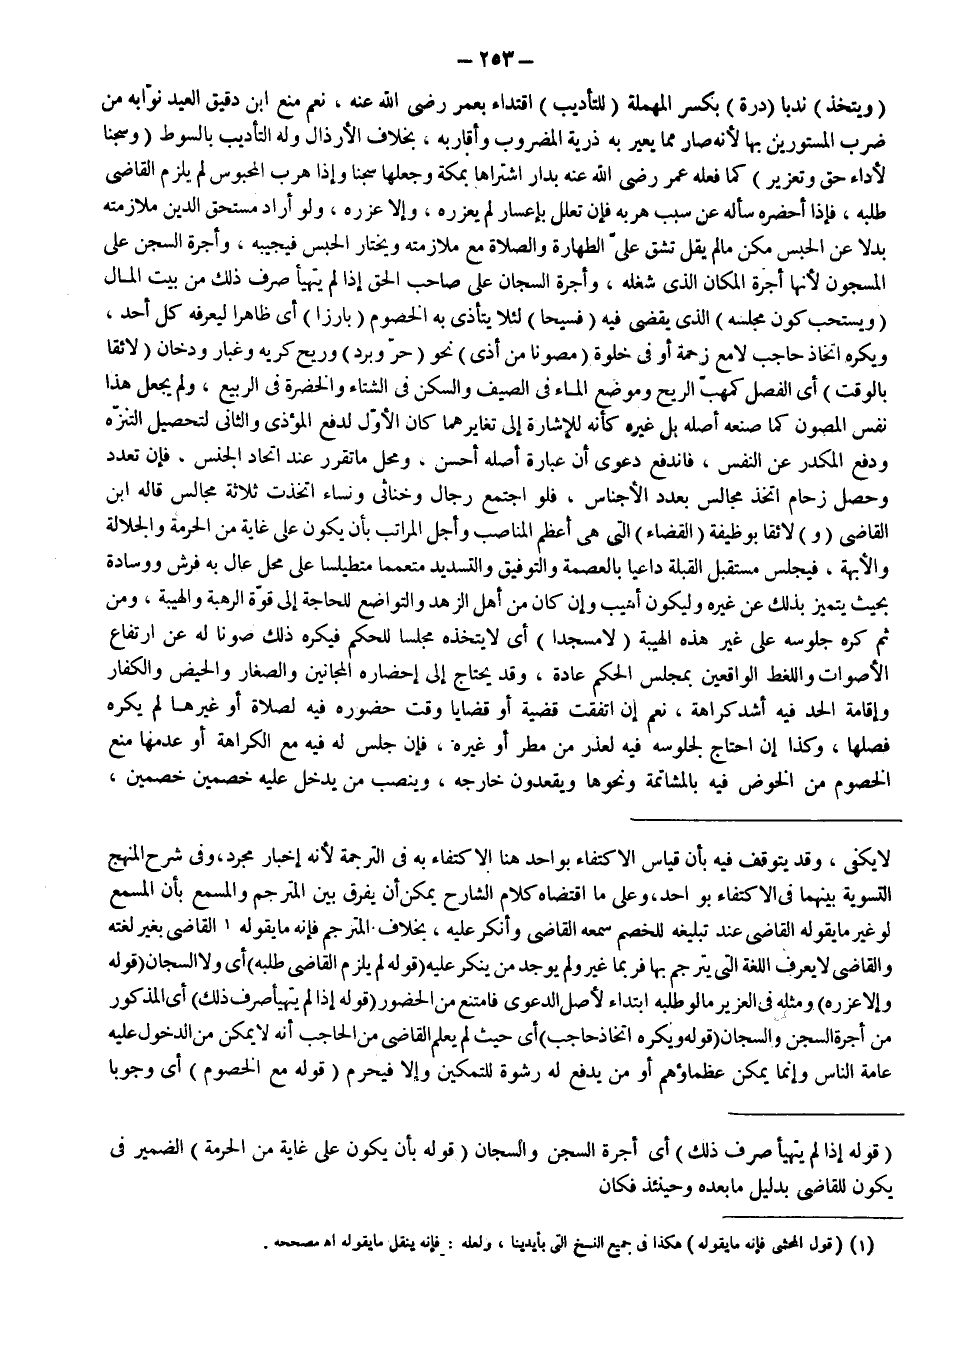 – ٢٥٣ –
( ويتخذ ) ندبا (درة) بكسر المهملة ( للتأديب ) اقتداء بعمر رضى الله عنه ، نعم منع ابن دقيق العيد نوّابه من
ضرب المستورين بها لأنه صار مما يعير به ذرية المضروب وأقاربه ، بخلاف الأرذال وله التأديب بالسوط ( وسجنا
لأداء حق وتعزير ) كما فعله عمر رضى الله عنه بدار اشتراها بمكة وجعلها سجنا وإذا هرب المحبوس لم يلزم القاضى
طلبه ، فإذا أحضره سأله عن سبب هربه فإن تعلل بإعسار لم يعزره ، وإلا عزره ، ولو أراد مستحق الدين ملازمته
بدلا عن الحبس مكن مالم يقل تشق علىّ الطهارة والصلاة مع ملازمته ويختار الحبس فيجيبه ، وأجرة السجن على
المسجون لأنها أجرة المكان الذى شغله ، وأجرة السجان على صاحب الحق إذا لم يتهيأ صرف ذلك من بيت المال
( ويستحب كون مجلسه ) الذى يقضى فيه ( فسيحا ) لئلا يتأذى به الخصوم ( بارزا ) أى ظاهرا ليعرفه كل أحد ،
ويكره اتخاذ حاجب لامع زحمة أو فى خلوة ( مصونا من أذى ) نحو ( حرّ وبرد ) وريح كريه وغبار ودخان ( لائقا
بالوقت ) أى الفصل كمهبّ الريح وموضع الماء فى الصيف والسكن فى الشتاء والخضرة فى الربيع ، ولم يجعل هذا
نفس المصون كما صنعه أصله بل غيره كأنه للإشارة إلى تغايرهما كان الأوّل لدفع المؤذى والثانى لتحصيل التنزّه
ودفع المكدر عن النفس ، فاندفع دعوى أن عبارة أصله أحسن . ومحل ماتقرر عند اتحاد الجنس . فإن تعدد
وحصل زحام اتخذ مجالس بعدد الأجناس ، فلو اجتمع رجال وخناثى ونساء اتخذت ثلاثة مجالس قاله ابن
القاضى ( و ) لائقا بوظيفة ( القضاء ) التى هى أعظم المناصب وأجل المراتب بأن يكون على غاية من الحرمة والجلالة
والأبهة ، فيجلس مستقبل القبلة داعيا بالعصمة والتوفيق والتسديد متعمما متطيلسا على محل عال به فرش ووسادة
بحيث يتميز بذلك عن غيره وليكون أهيب وإن كان من أهل الزهد والتواضع للحاجة إلى قوّة الرهبة والهيبة ، ومن
ثم كره جلوسه على غير هذه الهيبة ( لامسجدا ) أى لايتخذه مجلسا للحكم فيكره ذلك صونا له عن ارتفاع
الأصوات واللغط الواقعين بمجلس الحكم عادة ، وقد يحتاج إلى إحضاره المجانين والصغار والحيض والكفار
وإقامة الحد فيه أشد كراهة ، نعم إن اتفقت قضية أو قضايا وقت حضوره فيه لصلاة أو غيرها لم يكره
فصلها ، وكذا إن احتاج لجلوسه فيه لعذر من مطر أو غيره ، فإن جلس له فيه مع الكراهة أو عدمها منع
الخصوم من الخوض فيه بالمشاتمة ونحوها ويقعدون خارجه ، وينصب من يدخل عليه خصمين خصمين ،
لايكفى ، وقد يتوقف فيه بأن قياس الاكتفاء بواحد هنا الاكتفاء به فى الترجمة لأنه إخبار مجرد،وفى شرح المنهج
التسوية بينهما فى الاكتفاء بو احد،وعلى ما اقتضاه كلام الشارح يمكن أن يفرق بين المترجم والمسمع بأن المسمع
لوغير مايقوله القاضى عند تبليغه للخصم سمعه القاضى وأنكر عليه ، بخلاف المترجم فإنه مايقوله ١ القاضى بغير لغته
والقاضى لايعرف اللغة التى يترجم بها فربما غير ولم يوجد من ينكر عليه(قوله لم يلزم القاضى طلبه)أى ولا السجان(قوله
وإلا عزره) ومثله فى العزير مالو طلبه ابتداء لأصل الدعوى فامتنع من الحضور(قوله إذا لم يتهيأ صرف ذلك) أى المذكور
من أجرة السجن والسجان(قوله ويكره اتخاذ حاجب)أى حيث لم يعلم القاضى من الحاجب أنه لا يمكن من الدخول عليه
عامة الناس وإنما يمكن عظماؤهم أو من يدفع له رشوة للتمكين وإلا فيحرم ( قوله مع الخصوم ) أى وجوبا
( قوله إذا لم يتهيأ صرف ذلك ) أى أجرة السجن والسجان ( قوله بأن يكون على غاية من الحرمة ) الضمير فى
يكون للقاضى بدليل مابعده وحينئذ فكان
(١) ( قول المحشى فإنه مايقوله ) هكذا فى جميع النسخ التى بأيدينا ، ولعله : فإنه ينقل مايقوله اه مصححه .